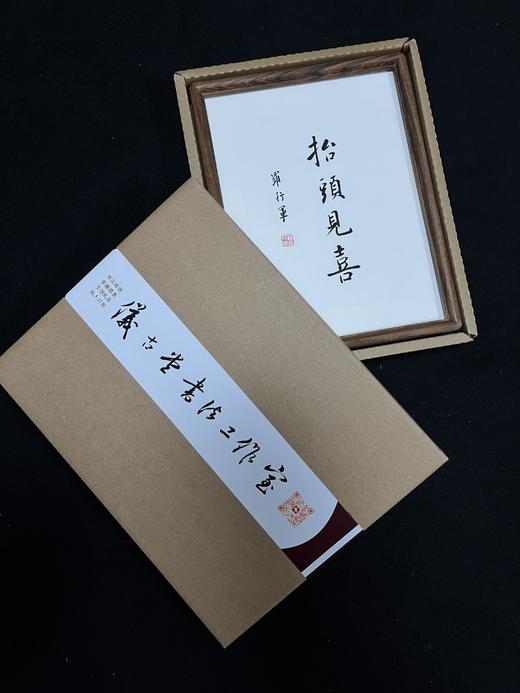 抬頭見喜
羅行軍
儀古堂書法工作室